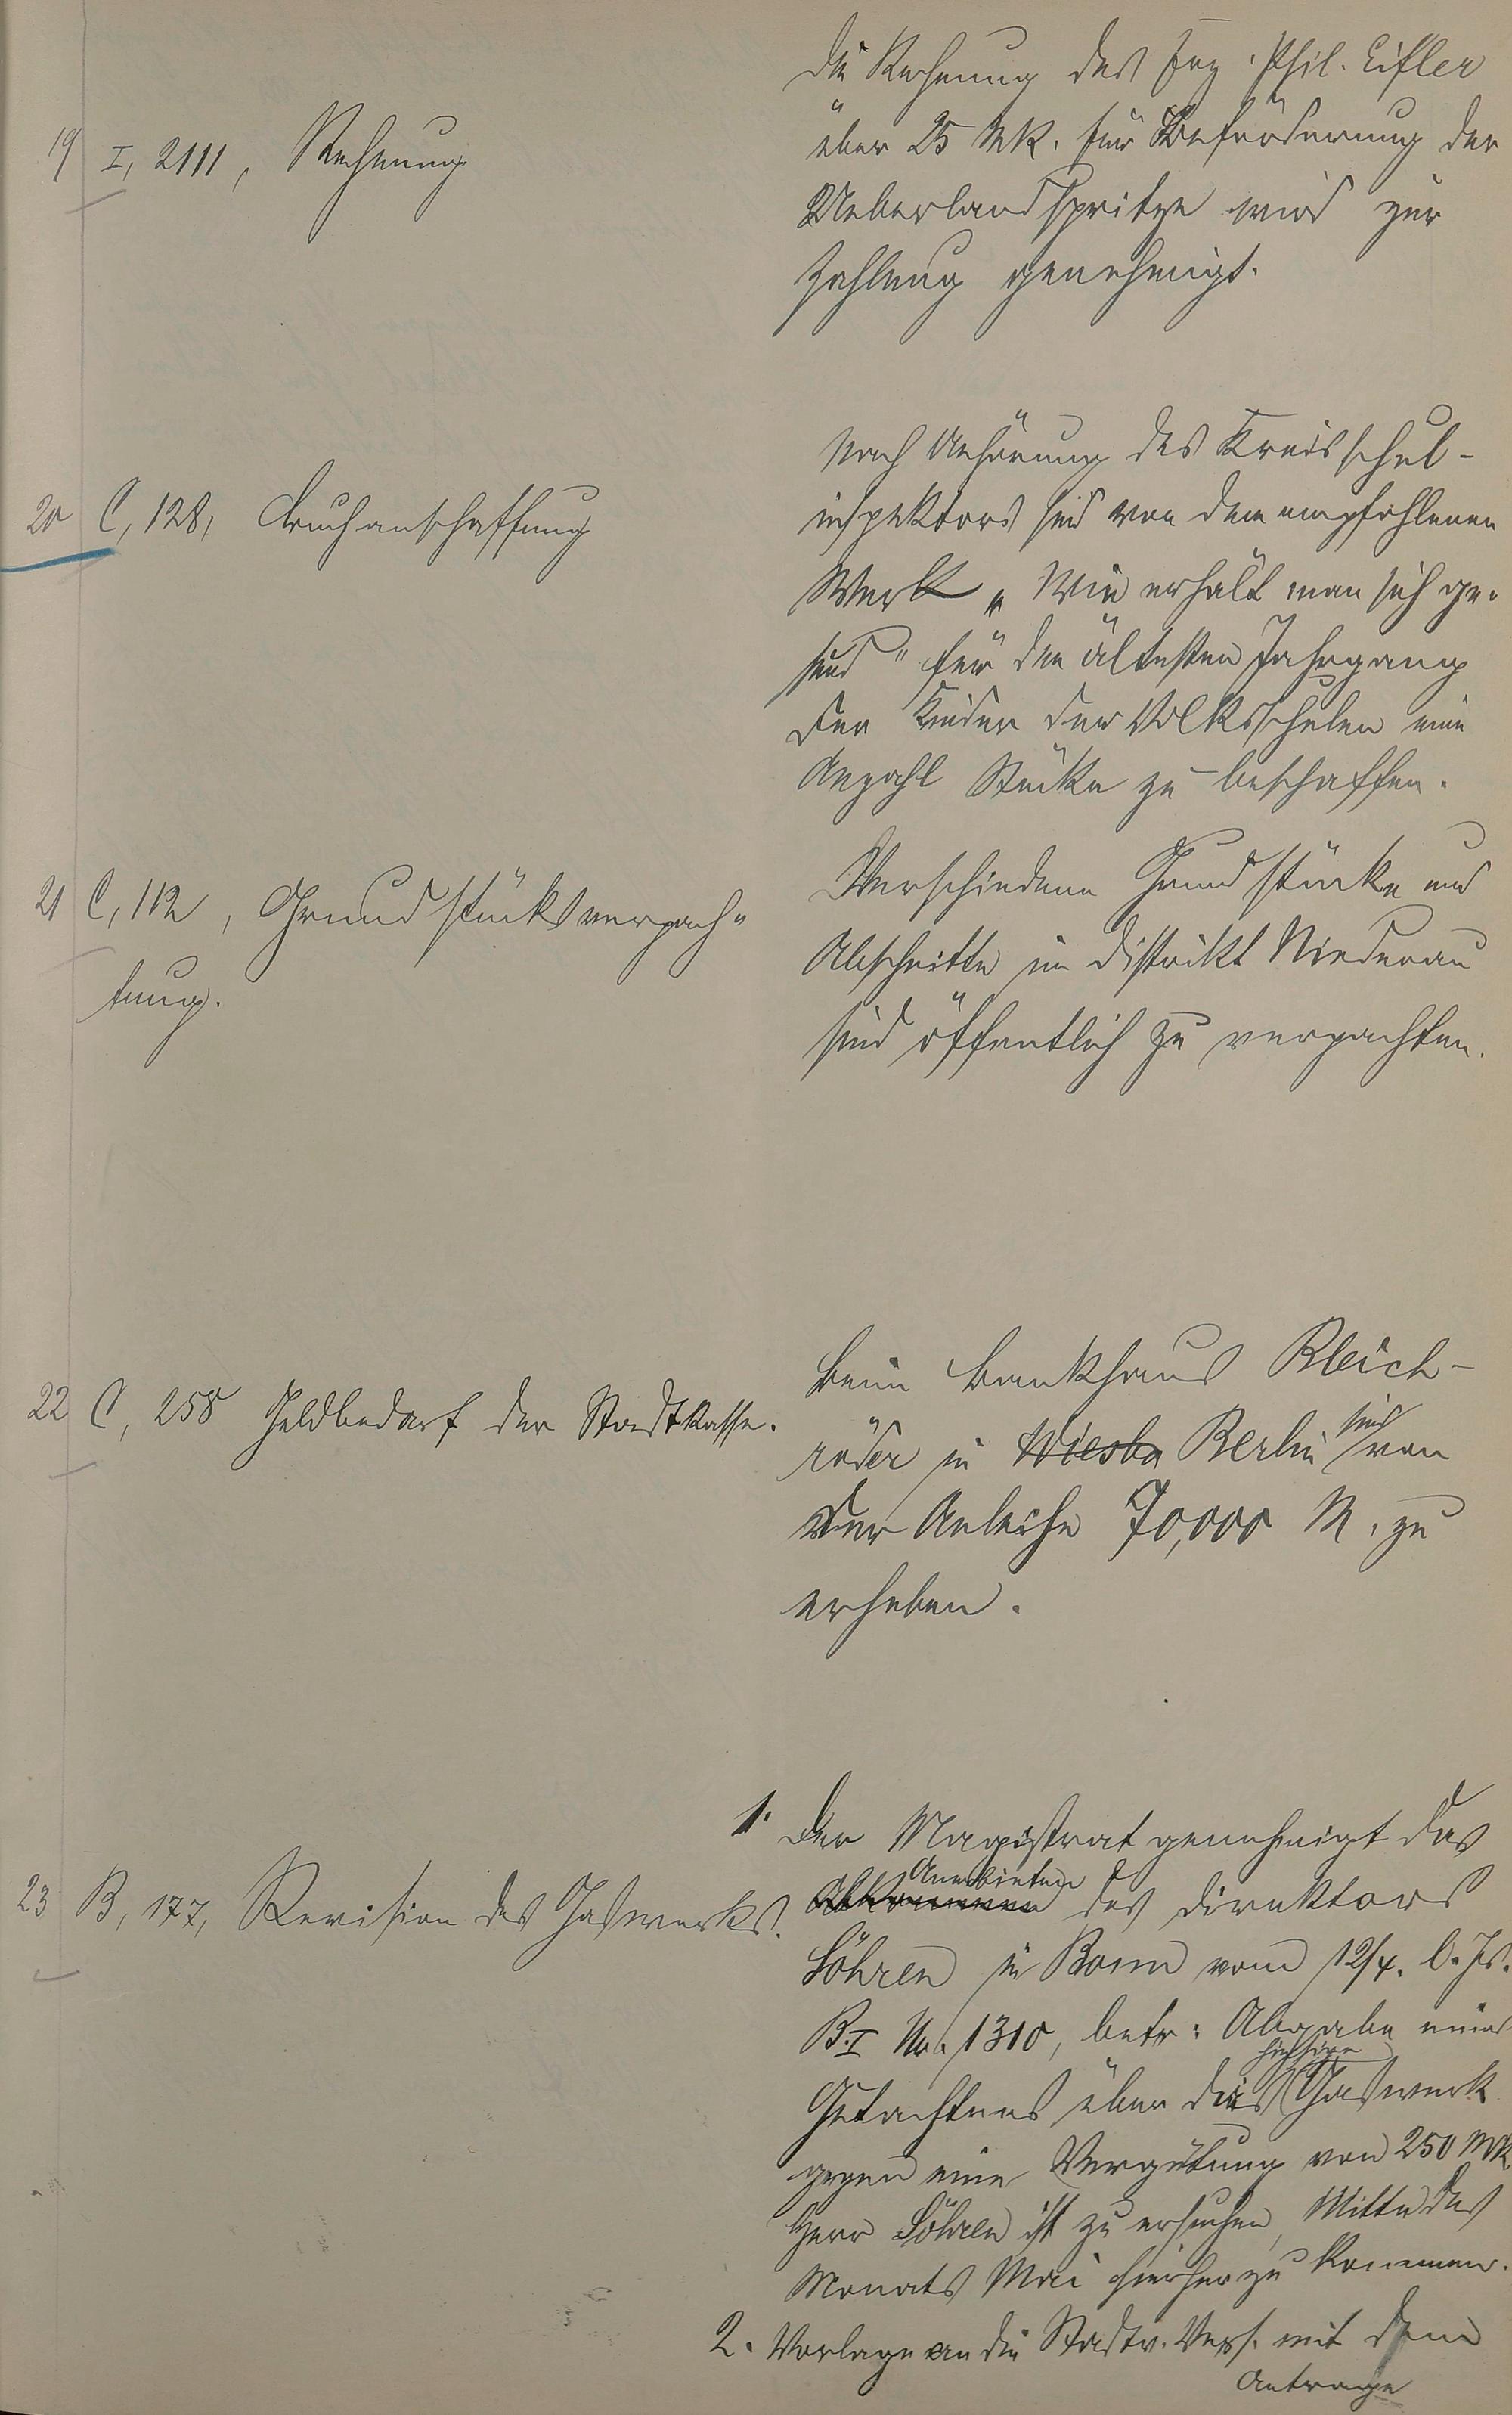 19 I, 2111, Rechnung
Die Rechnung des Frz. Phil. Eifler
über 25 Mk. für Beförderung der
Ueberlandspritze wird zur
Zahlung genehmigt.
20 C, 128, Buchanschaffung
Nach Anhörung des Kreisschul-
inspektors sind von dem empfohlenen
Werk „Wie erhält man sich ge-
sund" für den ältesten Jahrgang
der Kinder der Volksschulen eine
Anzahl Stücke zu beschaffen.
21 C, 112, Grundstücksverpach-
tung.
Verschiedene Grundstücke und
Abschnitte im Distrikt Niederau
sind öffentlich zu verpachten.
22 C, 258 Geldbedarf der Stadtkasse.
Beim Bankhaus Bleich-
röder in Wiesba Berlin sind von
der Anleihe 70,000 M. zu
erheben.
23 B, 177, Revision des Gaswerks.
1. Der Magistrat genehmigt das
Abkommen Anerbieten des Direktors
Söhren in Bonn vom 12/4. l. Js.
B.I No. 1310, betr: Abgabe eines
Gutachtens über das hiesige Gaswerk
gegen eine Vergütung von 250 Mk
Herr Söhren ist zu ersuchen, Mitte des
Monats Mai hierher zu kommen.
2. Vorlage an die Stadtv. Vers. mit dem
Antrage